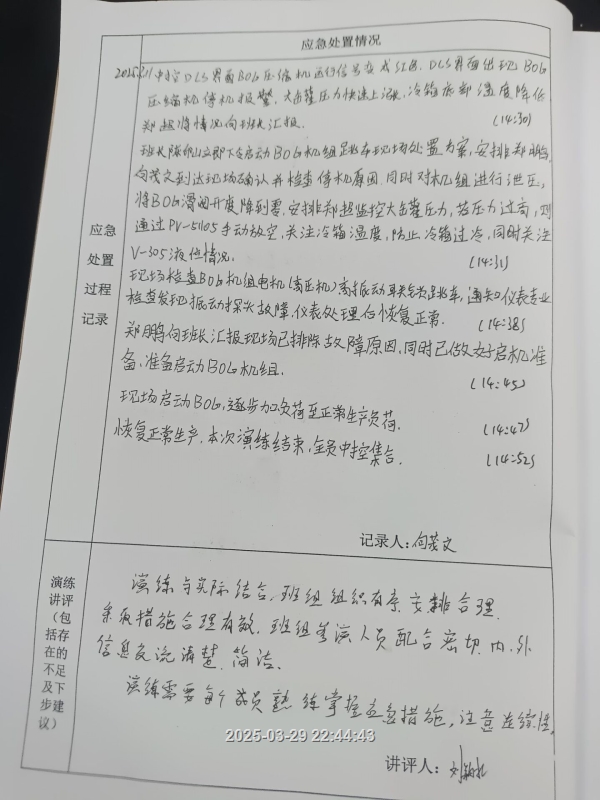 应急处置情况
2025.3.11中控DCS界面BOG压缩机运行信号变成红色，DCS界面出现BOG
压缩机停机报警，大罐压力快速上涨，冷箱底部温度降低
郑超将情况向班长汇报。 (14:30)
班长陈帆立即下令启动BOG机组跳车现场处置方案，安排郑鹏,
向茂文到达现场确认并检查停机原因，同时对机组进行泄压，
将BOG滑阀开度降到零，安排郑超监控大罐压力，若压力过高，则
通过PV-51105手动放空，关注冷箱温度，防止冷箱过冷，同时关注
V-305液位情况。 (14:31)
现场检查BOG机组电机（高压机）高振动联锁跳车，通知仪表专业
检查发现振动探头故障，仪表处理后恢复正常. (14:38)
郑鹏向班长汇报现场已排除故障原因，同时已做好启机准
备，准备启动BOG机组. (14:45)
现场启动BOG，逐步加负荷至正常生产负荷. (14:47)
恢复正常生产，本次演练结束，全员中控集合. (14:52)
应急
处置
过程
记录
记录人：向茂文
演练
讲评
（包
括存
在的
不足
及下
步建
议）
演练与实际结合，班组组织有序，安排合理，
采取措施合理有效，班组参演人员配合密切，内、外
信息交流清楚，简洁。
演练需要每个成员熟练掌握应急措施，注意连续性。
2025-03-29 22:44:43
讲评人：刘